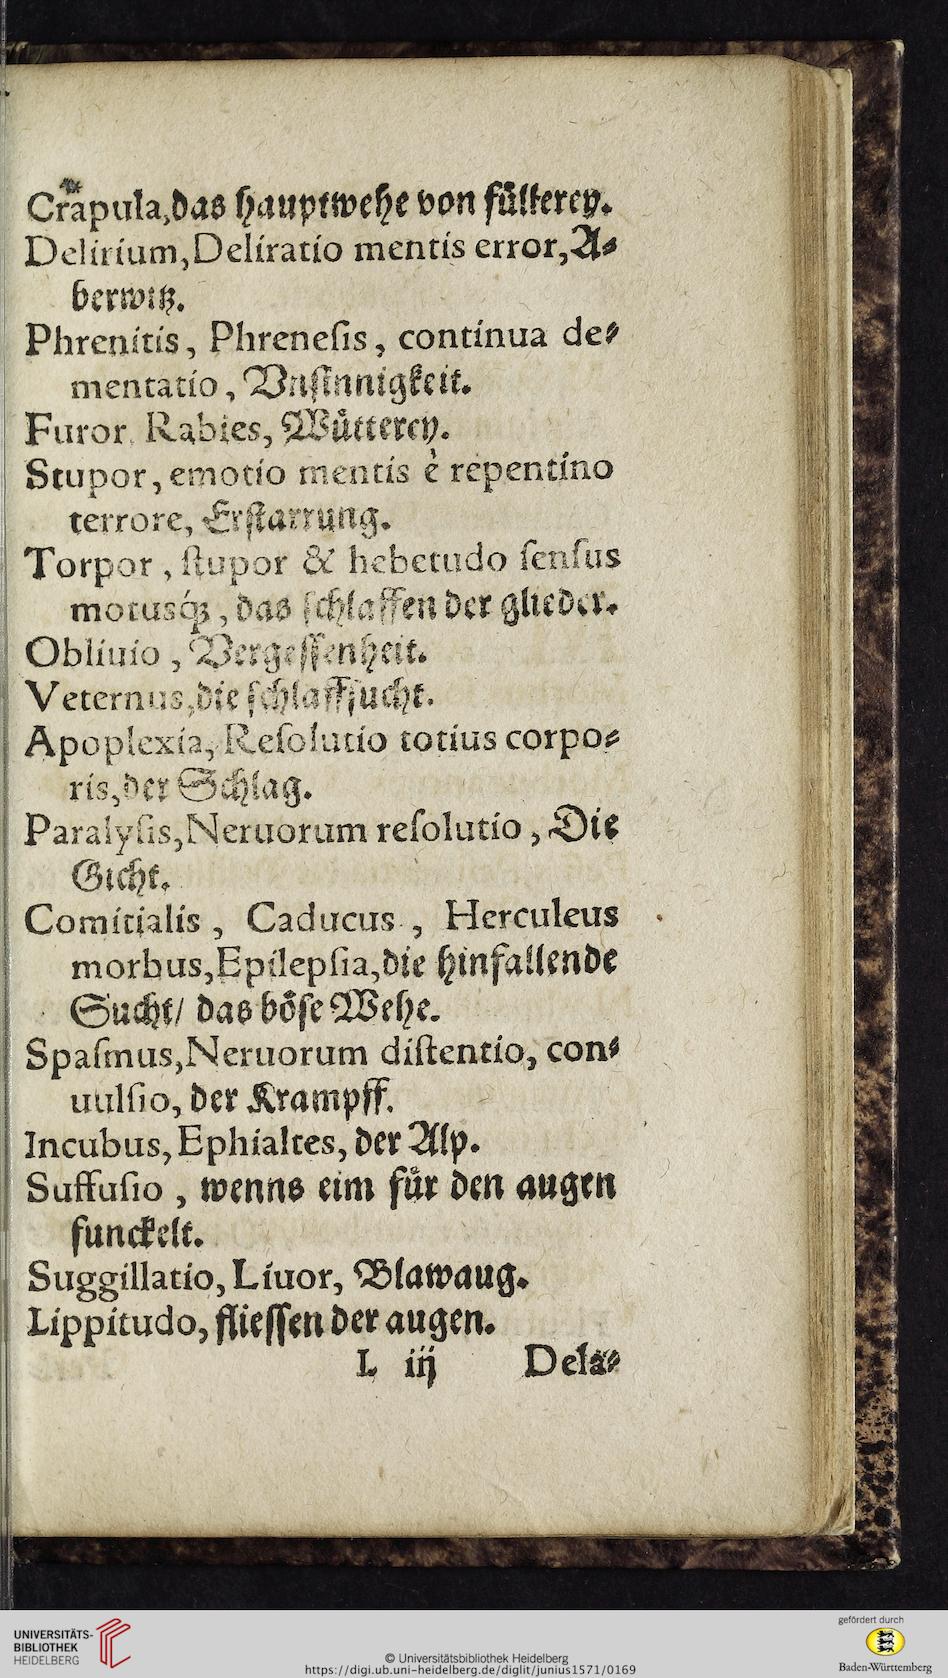 Crapula,das hauptwehe von fülterey.
Delirium,Deliratio mentis error,A⸗
berwitz.
Phrenitis, Phreneſis, continua de⸗
mentatio, Vnſinnigkeit.
Furor Rabies, Wütterey.
Stupor, emotio mentis è repentino
terrore, Erſtarrung.
Torpor, ſtupor & hebetudo ſenſus
motusq́ꝫ, das ſchlaffen der glieder.
Obliuio, Vergeſſenheit.
Veternus,die ſchlaffſucht.
Apoplexia, Reſolutio totius corpo⸗
ris,der Schlag.
Paralyſis,Neruorum reſolutio, Die
Gicht.
Comitialis, Caducus, Herculeus
morbus,Epilepſia,die hinfallende
Sucht/ das böſe Wehe.
Spaſmus,Neruorum diſtentio, con⸗
uulſio, der Krampff.
Incubus,Ephialtes, der Alp.
Suffuſio, wenns eim für den augen
funckelt.
Suggillatio, Liuor, Blawaug.
Lippitudo, flieſſen der augen.
L iij Dela⸗
UNIVERSITÄTS-
BIBLIOTHEK
HEIDELBERG
© Universitätsbibliothek Heidelberg
https://digi.ub.uni-heidelberg.de/diglit/junius1571/0169
gefördert durch
Baden-Württemberg